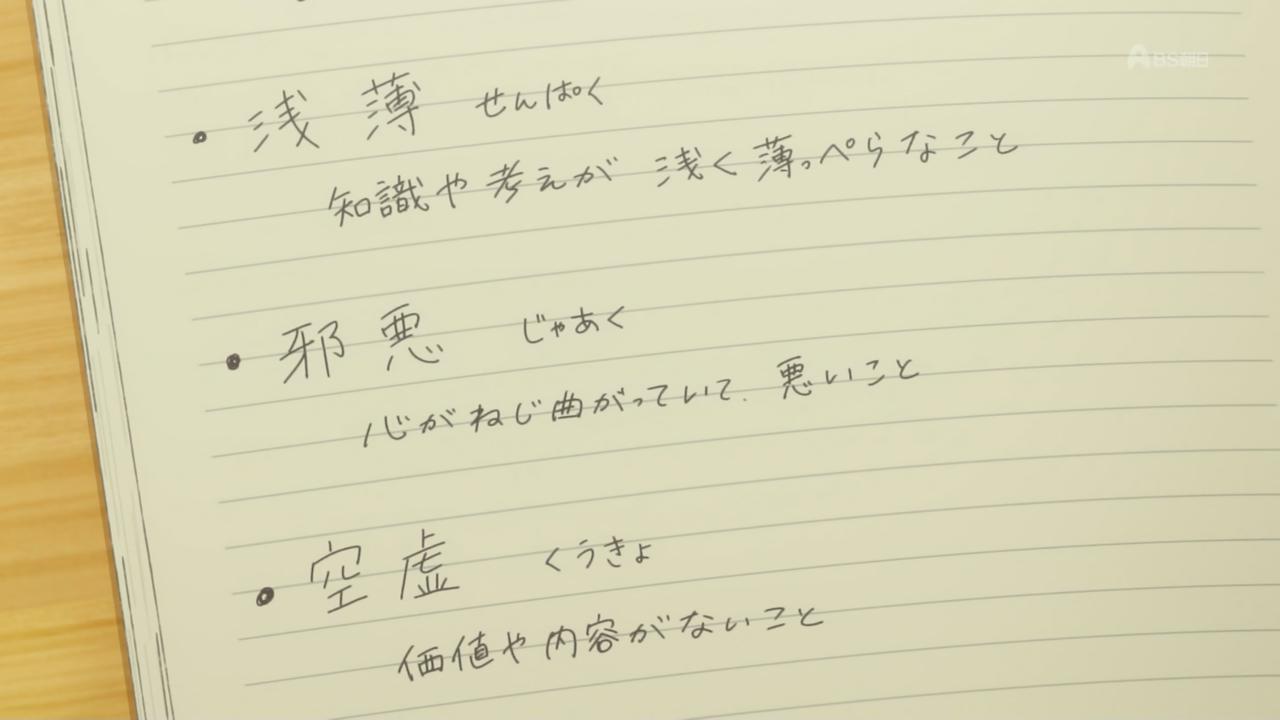 BS朝日
・浅薄 せんぱく
知識や考えが 浅く薄っぺらなこと
・邪悪 じゃあく
心がねじ曲がっていて、悪いこと
・空虚 くうきょ
価値や内容がないこと